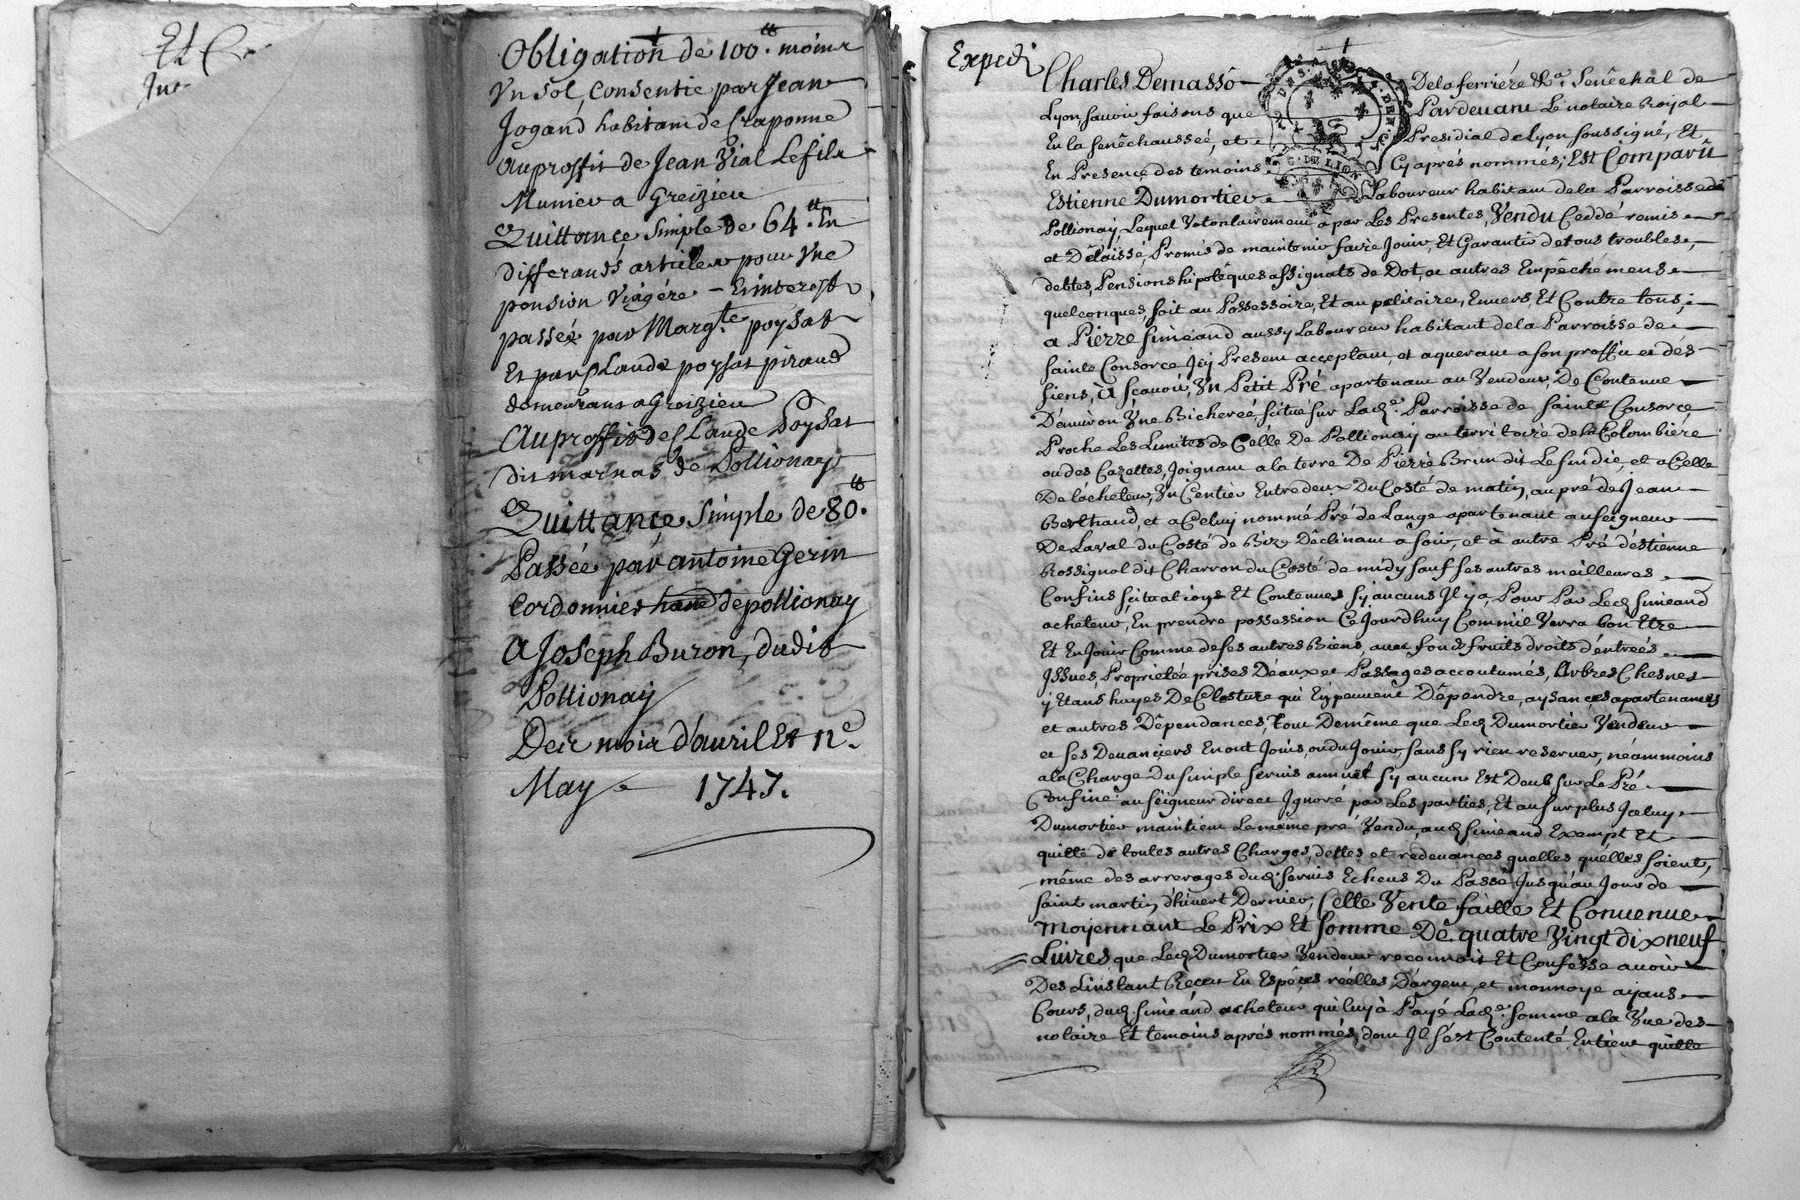 Et
Obligation de 100.tt moins
Un sol, Consentie par Jean
Jogand habitant de Craponne
Au proffit de Jean Vial Le fils
Munier a Greizieu
Quittance simple de 64.tt En
differands articles pour Une
pension Viagére - Et interest
passée par Marg.te poysat
Et par Claude poysat piraud
demeurans a Greizieu
Au proffit de Claude Poysat
dit marnas de Pollionay
Quittance simple de 80.tt
Passée par antoine Gerin
Cordonnier de pollionay
A Joseph Buron, dudit
Pollionay
Des mois d'auril Et
May 1747.
Expedi
Charles Demasso De la ferriére &.a Senêchal de
Lyon, sauoir faisons que Pardeuant Le notaire Royal
En la senêchaussée, et Presidial de Lyon soussigné, Et
En Presence des temoins Cy aprés nommés; Est Comparû
Estienne Dumortier Laboureur habitant de la Parroisse de
Pollionay, Lequel Volontairement a par Les Presentes, Vendu Ceddé remis
et Délaissé, Promis de maintenir faire Jouir, Et Garantir de tous troubles,
debtes, Pensions hipotêques assignats de Dot, et autres Empêchemens
quelconques, soit au Possessoire, Et au petitoire, Enuers, Et Contre tous;
a Pierre Siméand aussy Laboureur habitant de la Parroisse de
Sainte Consorce Icy Present acceptant, et aquerant a son proffit et des
siens, à sçauoir, Un Petit Pré apartenant au Vendeur, De Contenue
D'enuiron Une Bicherée, scitué sur Lad.e Parroisse de Sainte Consorce
Proche Les Limites de Celle De Pollionay au territoire de la Colombiére
ou des Cazettes, Joignant a la terre De Pierre Brun dit Le sindic, et a Celle
De l'acheteur, Un Centier Entredeux Du Costé de matin, au pré de Jean
Berthaud, et a Celuy nommé Pré de Lange apartenant au seigneur
De Laval du Costé de Bize Déclinant a soir, et à autre Pré d'estienne
Rossignol dit Charron du Costé de midy sauf ses autres meilleures
Confins scituations Et Contenues sy aucuns Il y a, Pour Par Led. Siméand
acheteur, En prendre possession Ce Jourdhuy Comm'il Verra bon Etre
Et En Jouir Comme de ses autres Biens, auec fonds fruits droits d'entrées
Issues, Proprietée prises D'eaux et Passages accoutumés, Arbres Chesnes
y Etans hayes De Closture qui En peuuent Dépendre, aysances apartenances
et autres Dépendances, tout De même que Led. Dumortier Vendeur
et Ses Deuanciers En ont Jouis, ou du Jouir sans sy rien reseruer, néammoins
a la Charge Du simple seruis annuel sy aucun Est Deub sur Le Pré
Confiné au seigneur direct Ignoré par Les parties, Et au surplus Iceluy
Dumortier maintient Le même pré Vendu, aud. Siméand Exempt Et
quitte de toutes autres Charges, dettes et redeuances quelles qu'elles soient,
même des arrerages dud. seruis Echeus Du Passé Jusqu'au Jour de
saint martin d'hiuert Dernier; Celle Vente faitte Et Conuenue
Moyennant Le Prix Et somme De quatre Vingt dix neuf
Liures que Led. Dumortier Vendeur reconnoit Et Confesse auoir
Des L'instant Receu En Espéces réelles D'argent, et monnoye ayans
Cours, dud. Siméand acheteur qui luy à Payé Lad.e somme a la Vue des
notaire Et temoins aprés nommés, dont Il s'est Contenté, En tient quitte